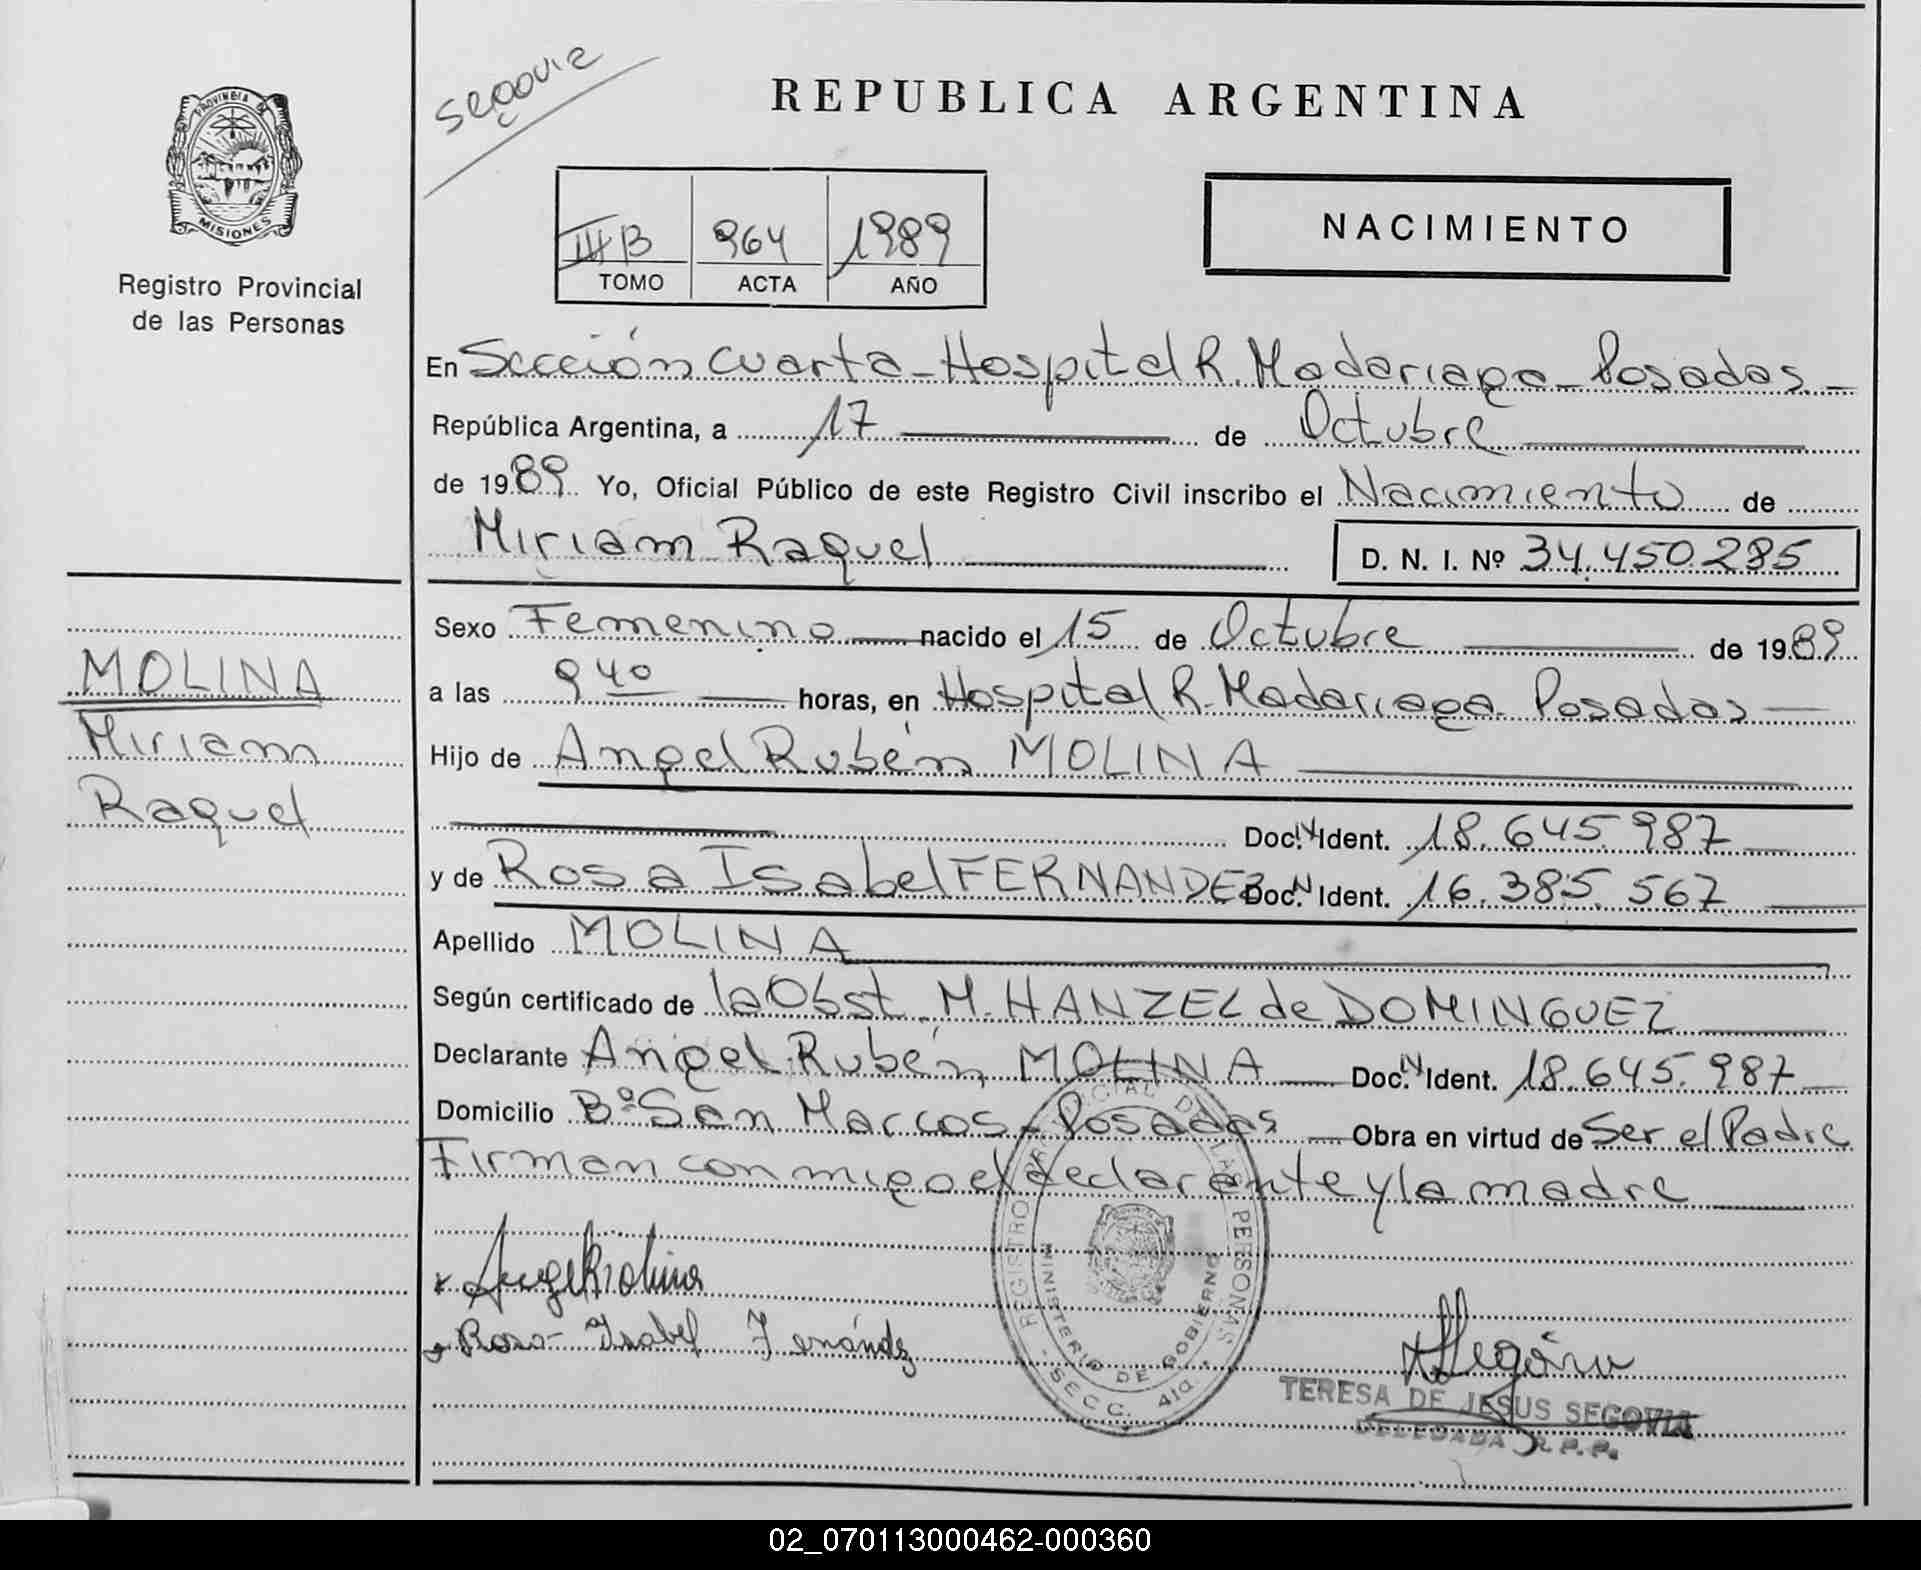 segovia
REPUBLICA ARGENTINA
PROVINCIA DE
MISIONES
Registro Provincial
de las Personas
III B 964 1989
TOMO ACTA AÑO
NACIMIENTO
En Sección Cuarta - Hospital R. Madariaga - Posadas. -
República Argentina, a 17 de Octubre
de 1989. Yo, Oficial Público de este Registro Civil inscribo el Nacimiento de
Miriam Raquel D. N. I. Nº 34.450.285
Sexo Femenino nacido el 15 de Octubre de 1989
a las 9 40 horas, en Hospital R. Madariaga - Posadas
Hijo de Angel Rubén MOLINA
Doc. N Ident. 18.645.987
y de Rosa Isabel FERNANDEZ Doc. N Ident. 16.385.567
Apellido MOLINA
Según certificado de la Obst. M. HANZEL de DOMINGUEZ
Declarante Angel Rubén MOLINA Doc. N Ident. 18.645.987
Domicilio Bº San Marcos - Posadas Obra en virtud de Ser el Padre
Firman conmigo el declarante y la madre
MOLINA
Miriam
Raquel
x Angel R Molina
x Rosa Isabel Fernández
REGISTRO PROVINCIAL DE LAS PERSONAS
MINISTERIO DE GOBIERNO
- SECC. 4ta. -
Segovia
TERESA DE JESUS SEGOVIA
DELEGADA R.P.P.
02_070113000462-000360